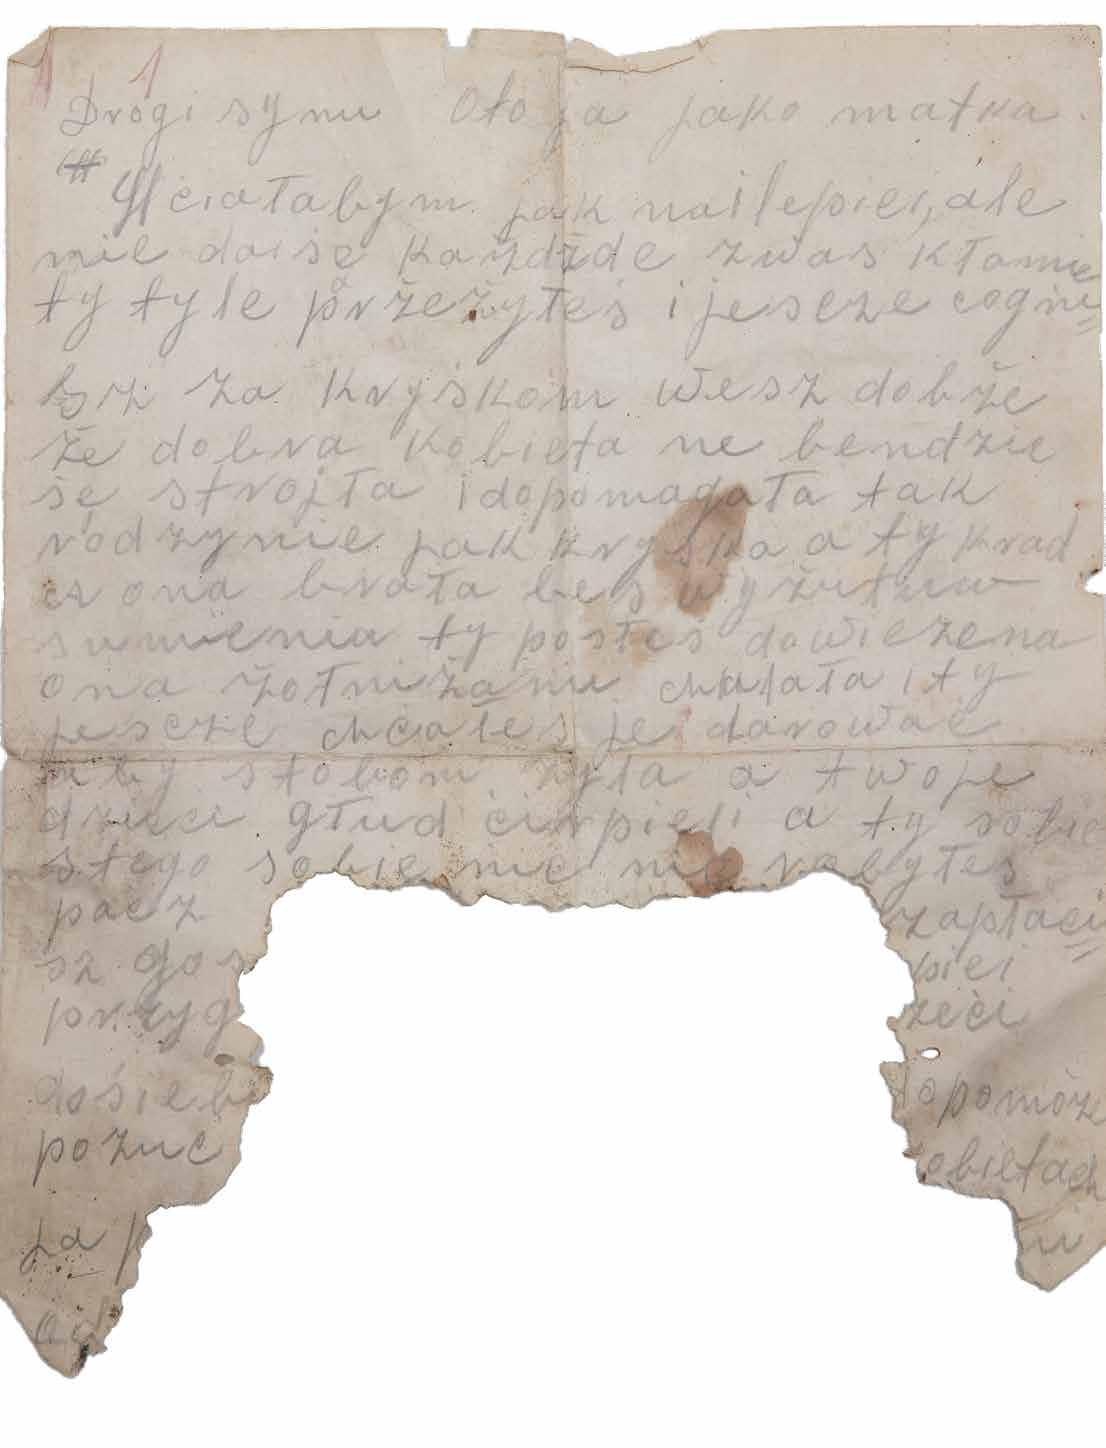 1 1
Drogi synu Oto ja jako matka.
Hciałabym jak nailepiei, ale
mie daise każdżde zwas kłamie
ty tyle prżeżyłeś i jescze cogni
sz za Kryśkom wesz dobże
że dobra kobieta ne bendzie
sę strojła i dopomagała tak
rodzynie jak kryśka a ty krad
ona brała bes wyżutuw
sumienia ty posłes dowieżena
ona żołniżami chulała i ty
jescze chcałes je darować
by stobom żyła a twoje
dzieci głud cirpieli a ty sobie
stego sobie nic nie robyłes
pacz zapłaci
sz gos piei
przyg żeci
dośieb dopomòż
pożuć kobietach
ja p ni
od